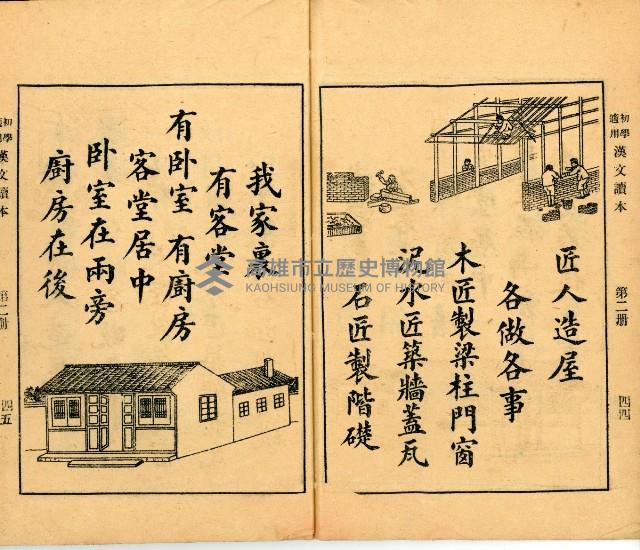 初學適用 漢文讀本 第二册 四四
匠人造屋
各做各事
木匠製梁柱門窗
泥水匠築牆蓋瓦
石匠製階礎
我家裏
有客堂
有卧室 有廚房
客堂居中
卧室在兩旁
廚房在後
初學適用 漢文讀本 第二册 四五
高雄市立歷史博物館
KAOHSIUNG MUSEUM OF HISTORY